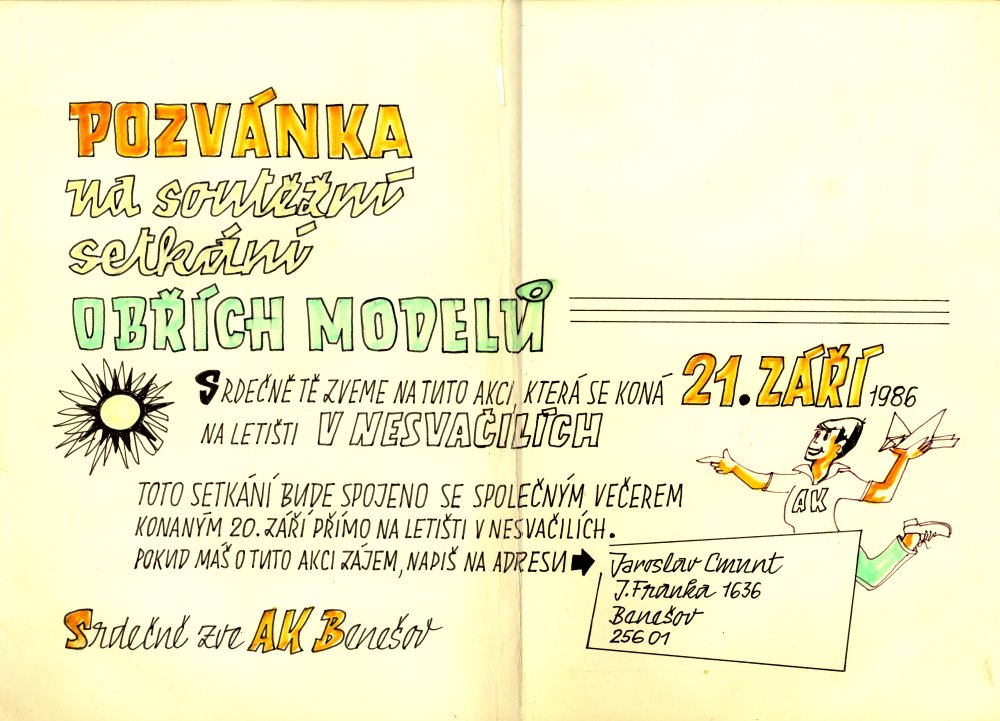 POZVÁNKA
na soutěžní
setkání
OBŘÍCH MODELŮ
SRDEČNĚ TĚ ZVEME NA TUTO AKCI, KTERÁ SE KONÁ 21. ZÁŘÍ 1986
NA LETIŠTI V NESVAČILÍCH
TOTO SETKÁNÍ BUDE SPOJENO SE SPOLEČNÝM VEČEREM
KONANÝM 20. ZÁŘÍ PŘÍMO NA LETIŠTI V NESVAČILÍCH.
POKUD MÁŠ O TUTO AKCI ZÁJEM, NAPIŠ NA ADRESU
AK
Jaroslav Cmunt
J. Franka 1636
Benešov
256 01
Srdečně zve AK Benešov